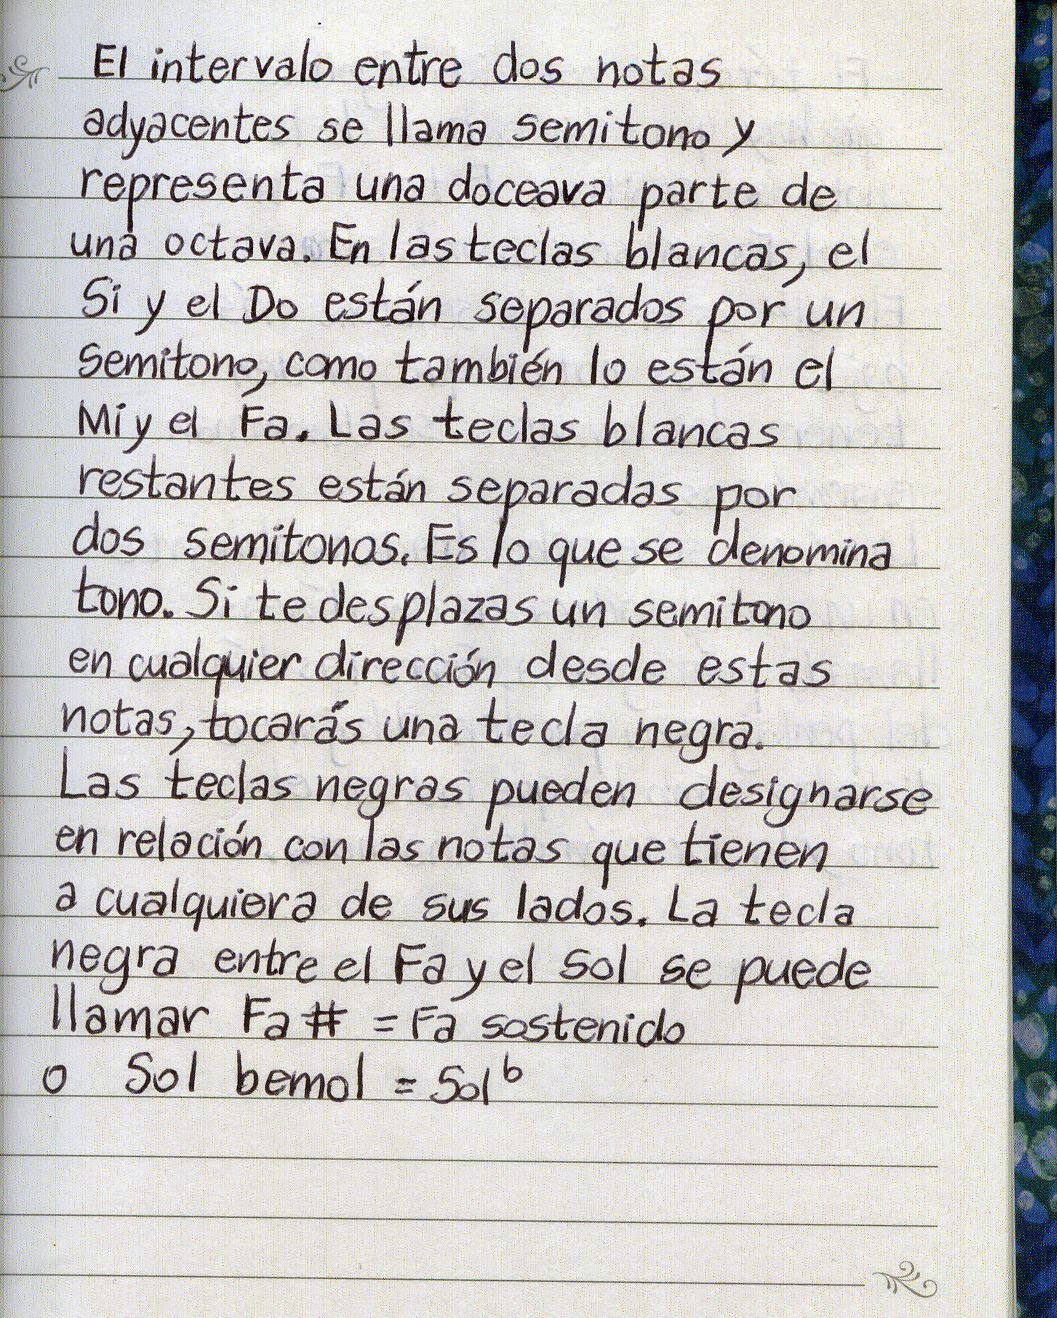 El intervalo entre dos notas
adyacentes se llama semitono y
representa una doceava parte de
una octava. En las teclas blancas, el
Si y el Do están separados por un
semitono, como también lo están el
Mi y el Fa. Las teclas blancas
restantes están separadas por
dos semitonos. Es lo que se denomina
tono. Si te desplazas un semitono
en cualquier dirección desde estas
notas, tocarás una tecla negra.
Las teclas negras pueden designarse
en relación con las notas que tienen
a cualquiera de sus lados. La tecla
negra entre el Fa y el Sol se puede
llamar Fa# = Fa sostenido
o Sol bemol = Sol b